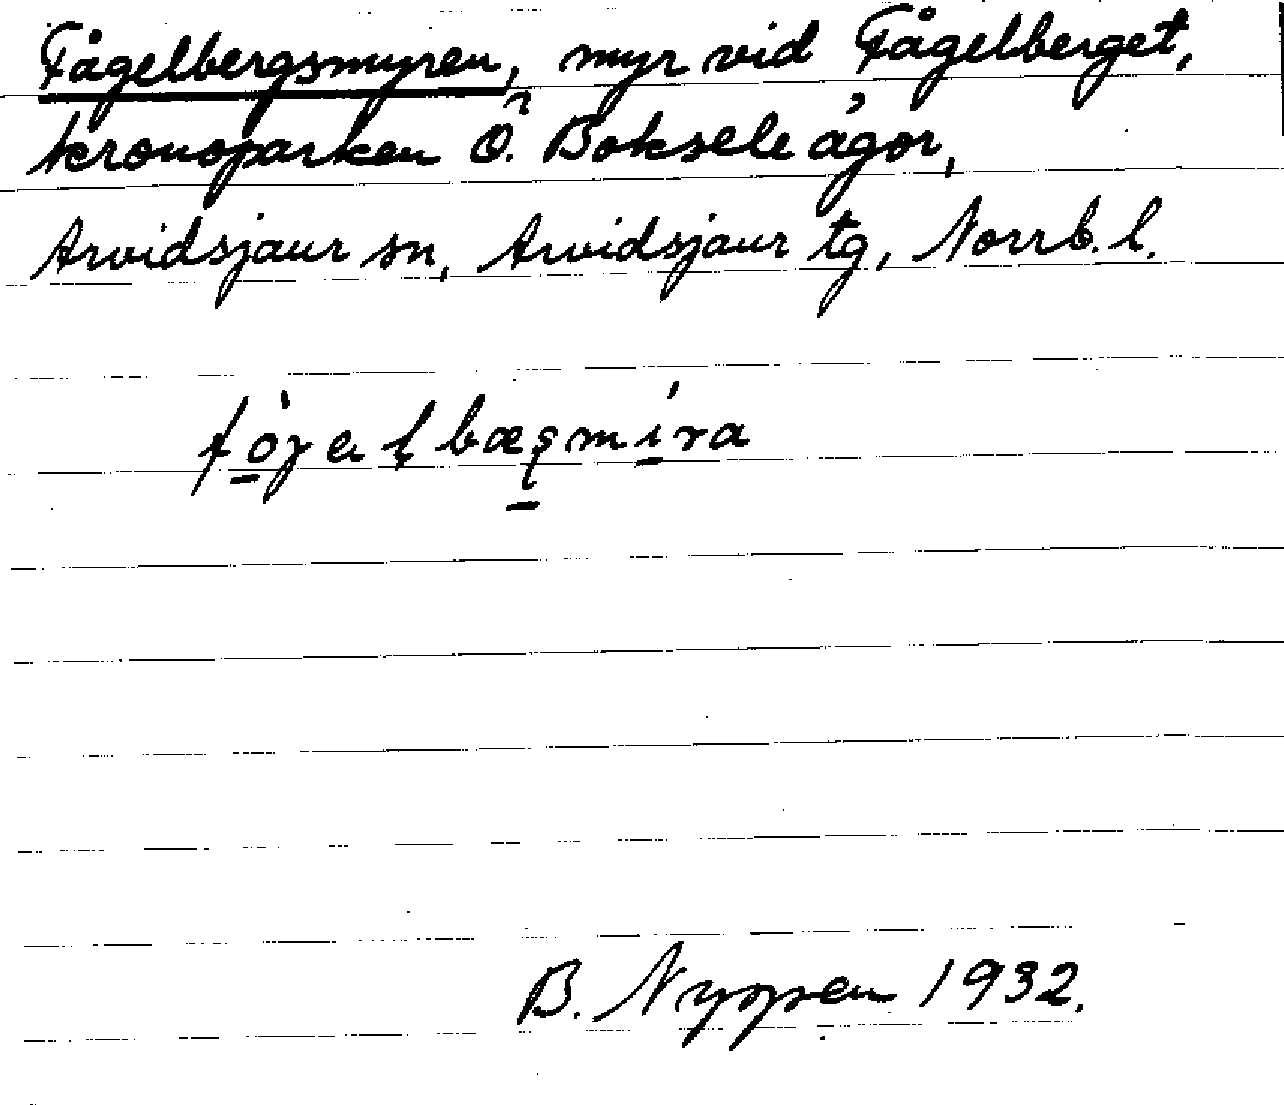 Fågelbergsmyren, myr vid Fågelberget,
kronoparken Ö. Boksele ägor,
Arvidsjaur sn, Arvidsjaur tg, Norrb. l.
B. Nyppen 1932.